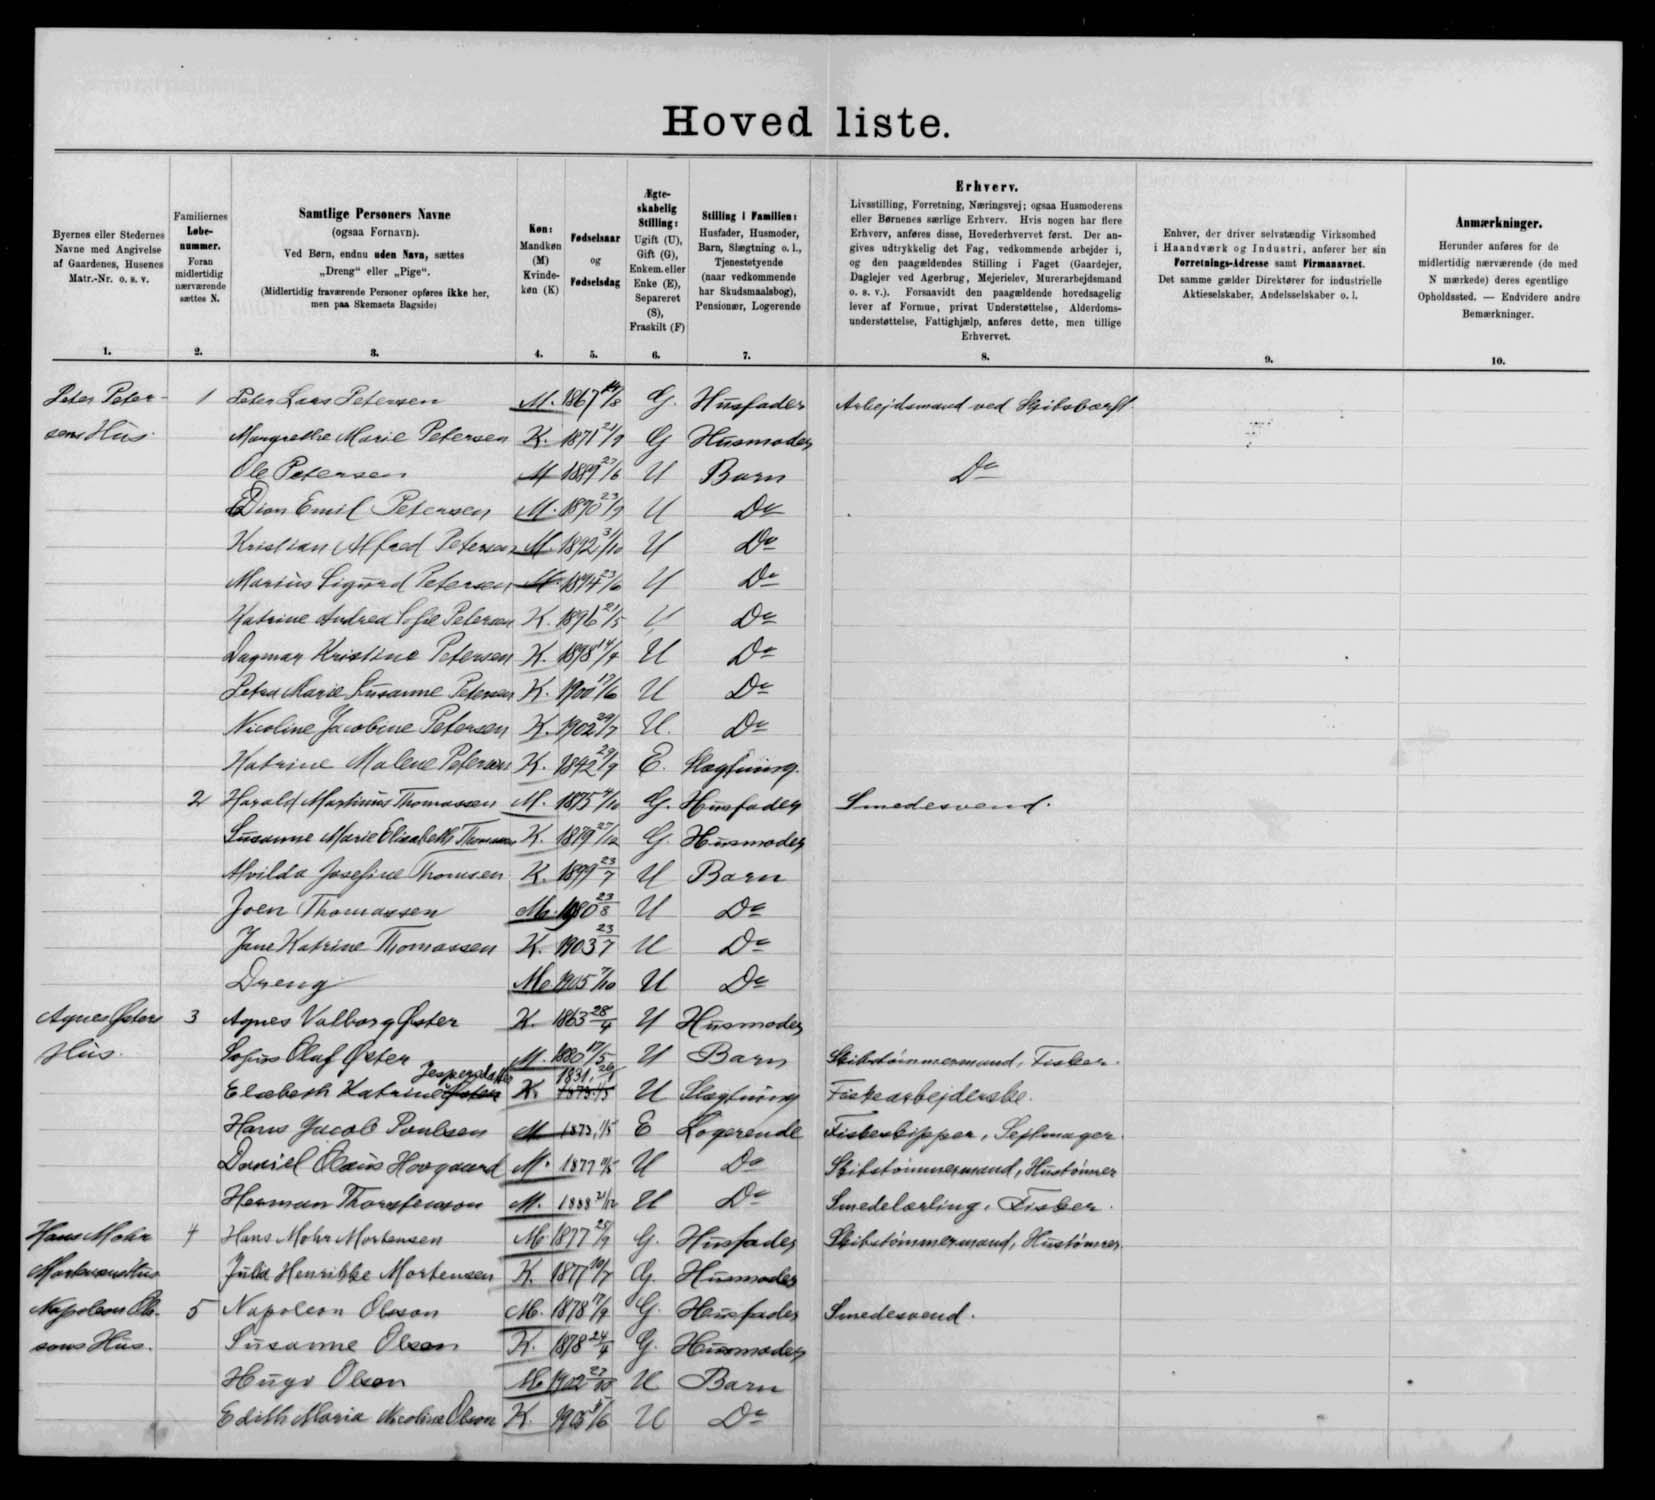 Hoved liste.
Byernes eller Stedernes Navne med Angivelse af Gaardenes, Husenes Matr.-Nr. o. s. v.
1.
Familiernes Løbe-nummer. Foran midlertidig nærværende sættes N.
2.
Samtlige Personers Navne
(ogsaa Fornavn).
Ved Børn, endnu uden Navn, sættes
„Dreng“ eller „Pige“.
(Midlertidig fraværende Personer opføres ikke her, men paa Skemaets Bagside)
3.
Køn: Mandkøn (M) Kvinde-køn (K)
4.
Fødselsaar og Fødselsdag
5.
Ægte-skabelig Stilling: Ugift (U), Gift (G), Enkem. eller Enke (E), Separeret (S), Fraskilt (F)
6.
Stilling i Familien: Husfader, Husmoder, Barn, Slægtning o. l., Tjenestetyende (naar vedkommende har Skudsmaalsbog), Pensionær, Logerende
7.
Erhverv.
Livsstilling, Forretning, Næringsvej; ogsaa Husmoderens
eller Børnenes særlige Erhverv. Hvis nogen har flere
Erhverv, anføres disse, Hovederhvervet først. Der an-
gives udtrykkelig det Fag, vedkommende arbejder i,
og den paagældendes Stilling i Faget (Gaardejer,
Daglejer ved Agerbrug, Mejerielev, Murerarbejdsmand
o. s. v.). Forsaavidt den paagældende hovedsagelig
lever af Formue, privat Understøttelse, Alderdoms-
understøttelse, Fattighjælp, anføres dette, men tillige
Erhvervet.
8.
Enhver, der driver selvstændig Virksomhed
i Haandværk og Industri, anfører her sin
Forretnings-Adresse samt Firmanavnet.
Det samme gælder Direktører for industrielle
Aktieselskaber, Andelsselskaber o. l.
9.
Anmærkninger.
Herunder anføres for de
midlertidig nærværende (de med
N mærkede) deres egentlige
Opholdssted. — Endvidere andre
Bemærkninger.
10.
Peter Peter- 1 Peter Lars Petersen M. 1867 14/8 G. Husfader Arbejdsmand ved Skibsværft
sens Hus. Margrethe Marie Petersen K. 1871 21/9 G Husmoder
Ole Petersen M 1889 27/6 U Barn Do
Dion Emil Petersen M. 1890 23/9 U Do
Kristian Alfred Petersen M. 1892 31/10 U Do
Marius Sigurd Petersen M. 1894 23/6 U Do
Katrine Andrea Sofie Petersen K. 1896 21/5 U Do
Dagmar Kristine Petersen K. 1898 14/4 U Do
Petra Marie Susanne Petersen K. 1900 17/6 U Do
Nicoline Jacobine Petersen K. 1902 29/7 U. Do
Katrine Malene Petersen K. 1842 29/9 E. Slægtning.
2 Harald Martinus Thomassen M. 1875 4/10 G. Husfader Smedesvend.
Susanne Marie Elisabeth Thomassen K. 1879 27/12 G. Husmoder
Alvilda Josefine Thomsen K. 1899 23/7 U Barn
Joen Thomassen M. 23/8 U Do
Jane Katrine Thomassen K. 1903 23/7 U Do
Dreng M 1905 7/10 U Do
Agnes Østers 3 Agnes Valborg Øster K. 1863 28/4 U Husmoder
Hus. Sofus Oluf Øster M. 1880 17/5 U Barn Skibstømmermand, Fisker.
Elsebeth Katrine Jespersdatter K. 1831 26/1 U Slægtning Fiskearbejderske.
Hans Jacob Poulsen M 1873, 1/5 E Logerende Fiskeskipper, Sejlmager.
Daniel Claus Hovgaard M. 1877 U Do Skibstømmermand, Hustømrer
Herman Thorsteinson M. 1888 21/12 U Do Smedelærling, Fisker.
Hans Mohr 4 Hans Mohr Mortensen M 1877 25/7 G. Husfader Skibstømmermand, Hustømrer.
Mortensens Hus Julia Henrikke Mortensen K. 1877 10/7 G Husmoder
Napoleon Ol- 5 Napoleon Olsson M. 1878 17/9 G. Husfader Smedesvend.
sons Hus. Susanne Olson K. 1878 24/4 G. Husmoder
Hugo Olson M 1902 27/10 U Barn
Edith Maria Nicoline Olson K. 1905 5/6 U Do